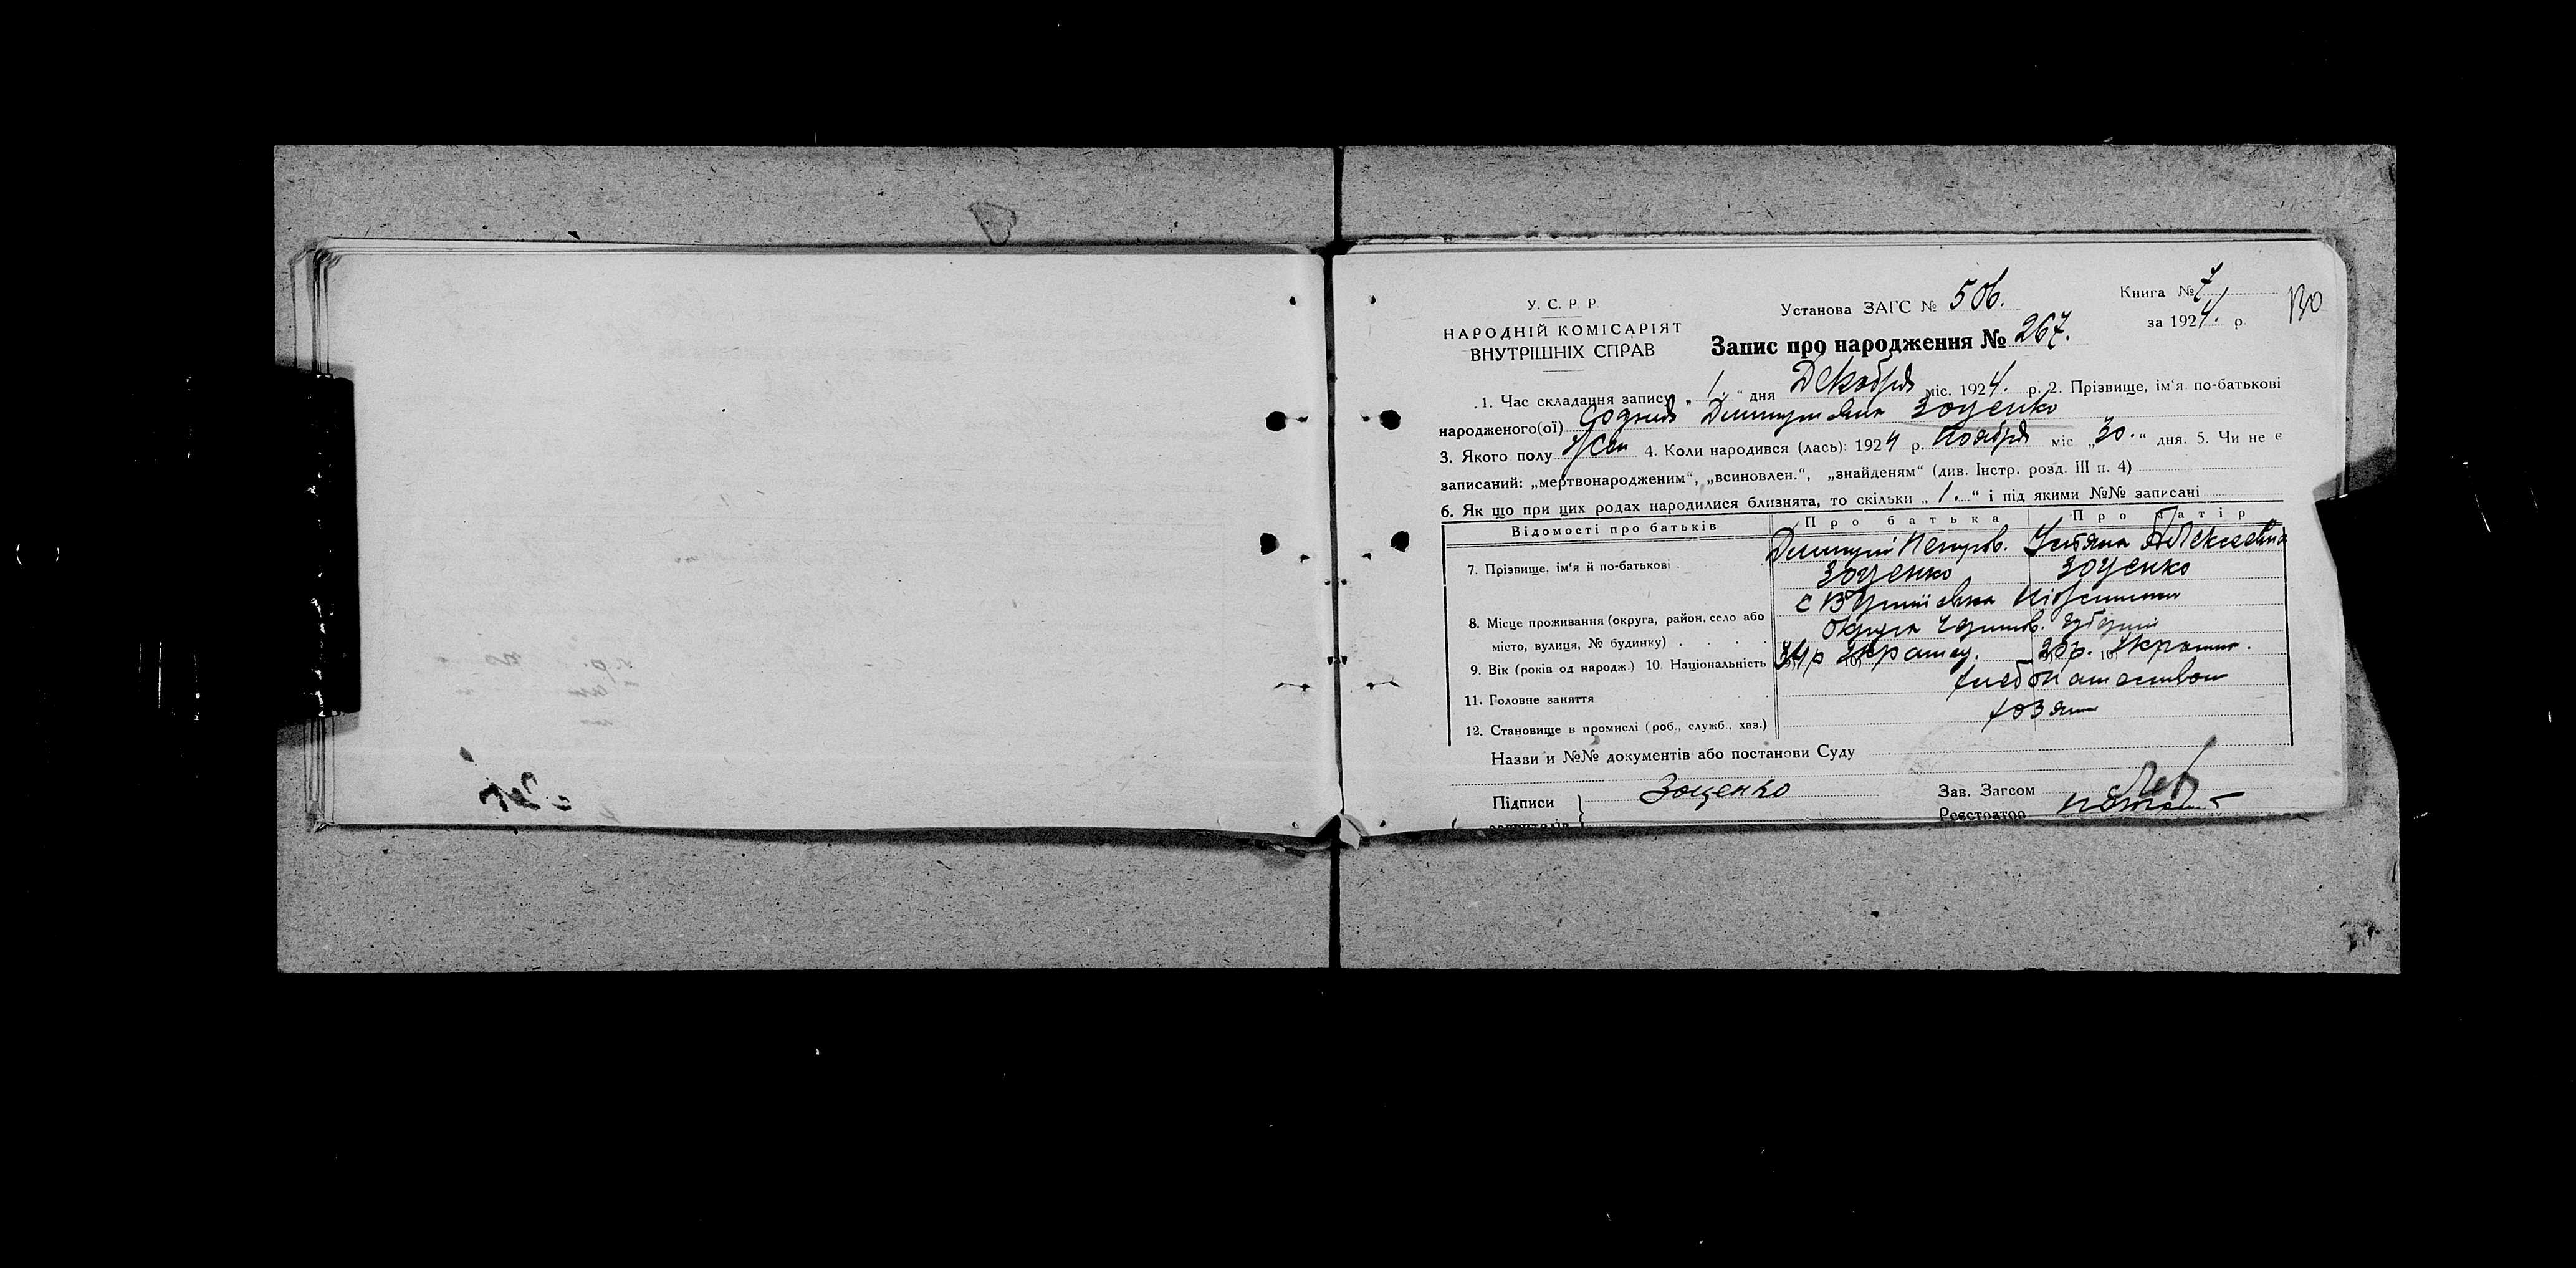 У. С. Р. Р.
НАРОДНІЙ КОМІСАРІЯТ
ВНУТРІШНІХ СПРАВ
Установа ЗАГС № 506.
Книга № 7
за 1924. р.
130
Запис про народження № 267.
1. Час складання запису „1“ дня Декабря міс. 1924. р. 2. Прізвище, ім‘я по-батькові
народженого(ої) Дмитриевна Зоценко
3. Якого полу Жен 4. Коли народився (лась): 1924 р. Ноября міс „30.“ дня. 5. Чи не є
записаний: „мертвонародженим“, „всиновлен.“, „знайденям“ (див. Інстр. розд. III п. 4)
6. Як що при цих родах народилися близнята, то скільки „1.“ і під якими №№ записані
Відомості про батьків Про батька Про матір
7. Прізвище, ім‘я й по-батькові Дмитрий Петров. Устяна Алексеевна
Зоценко Зоценко
8. Місце проживання (округа, район, село або с
місто, вулиця, № будинку) округа Чернигов. губернии
9. Вік (років од народж.) 10. Національність 34р Украинец. 10) Украин.
11. Головне заняття хлебопашество
12. Становище в промислі (роб., служб., хаз.) хозяин
Назви и №№ документів або постанови Суду
Підписи Зощенко Зав. Загсом
заявителів Реєстратор